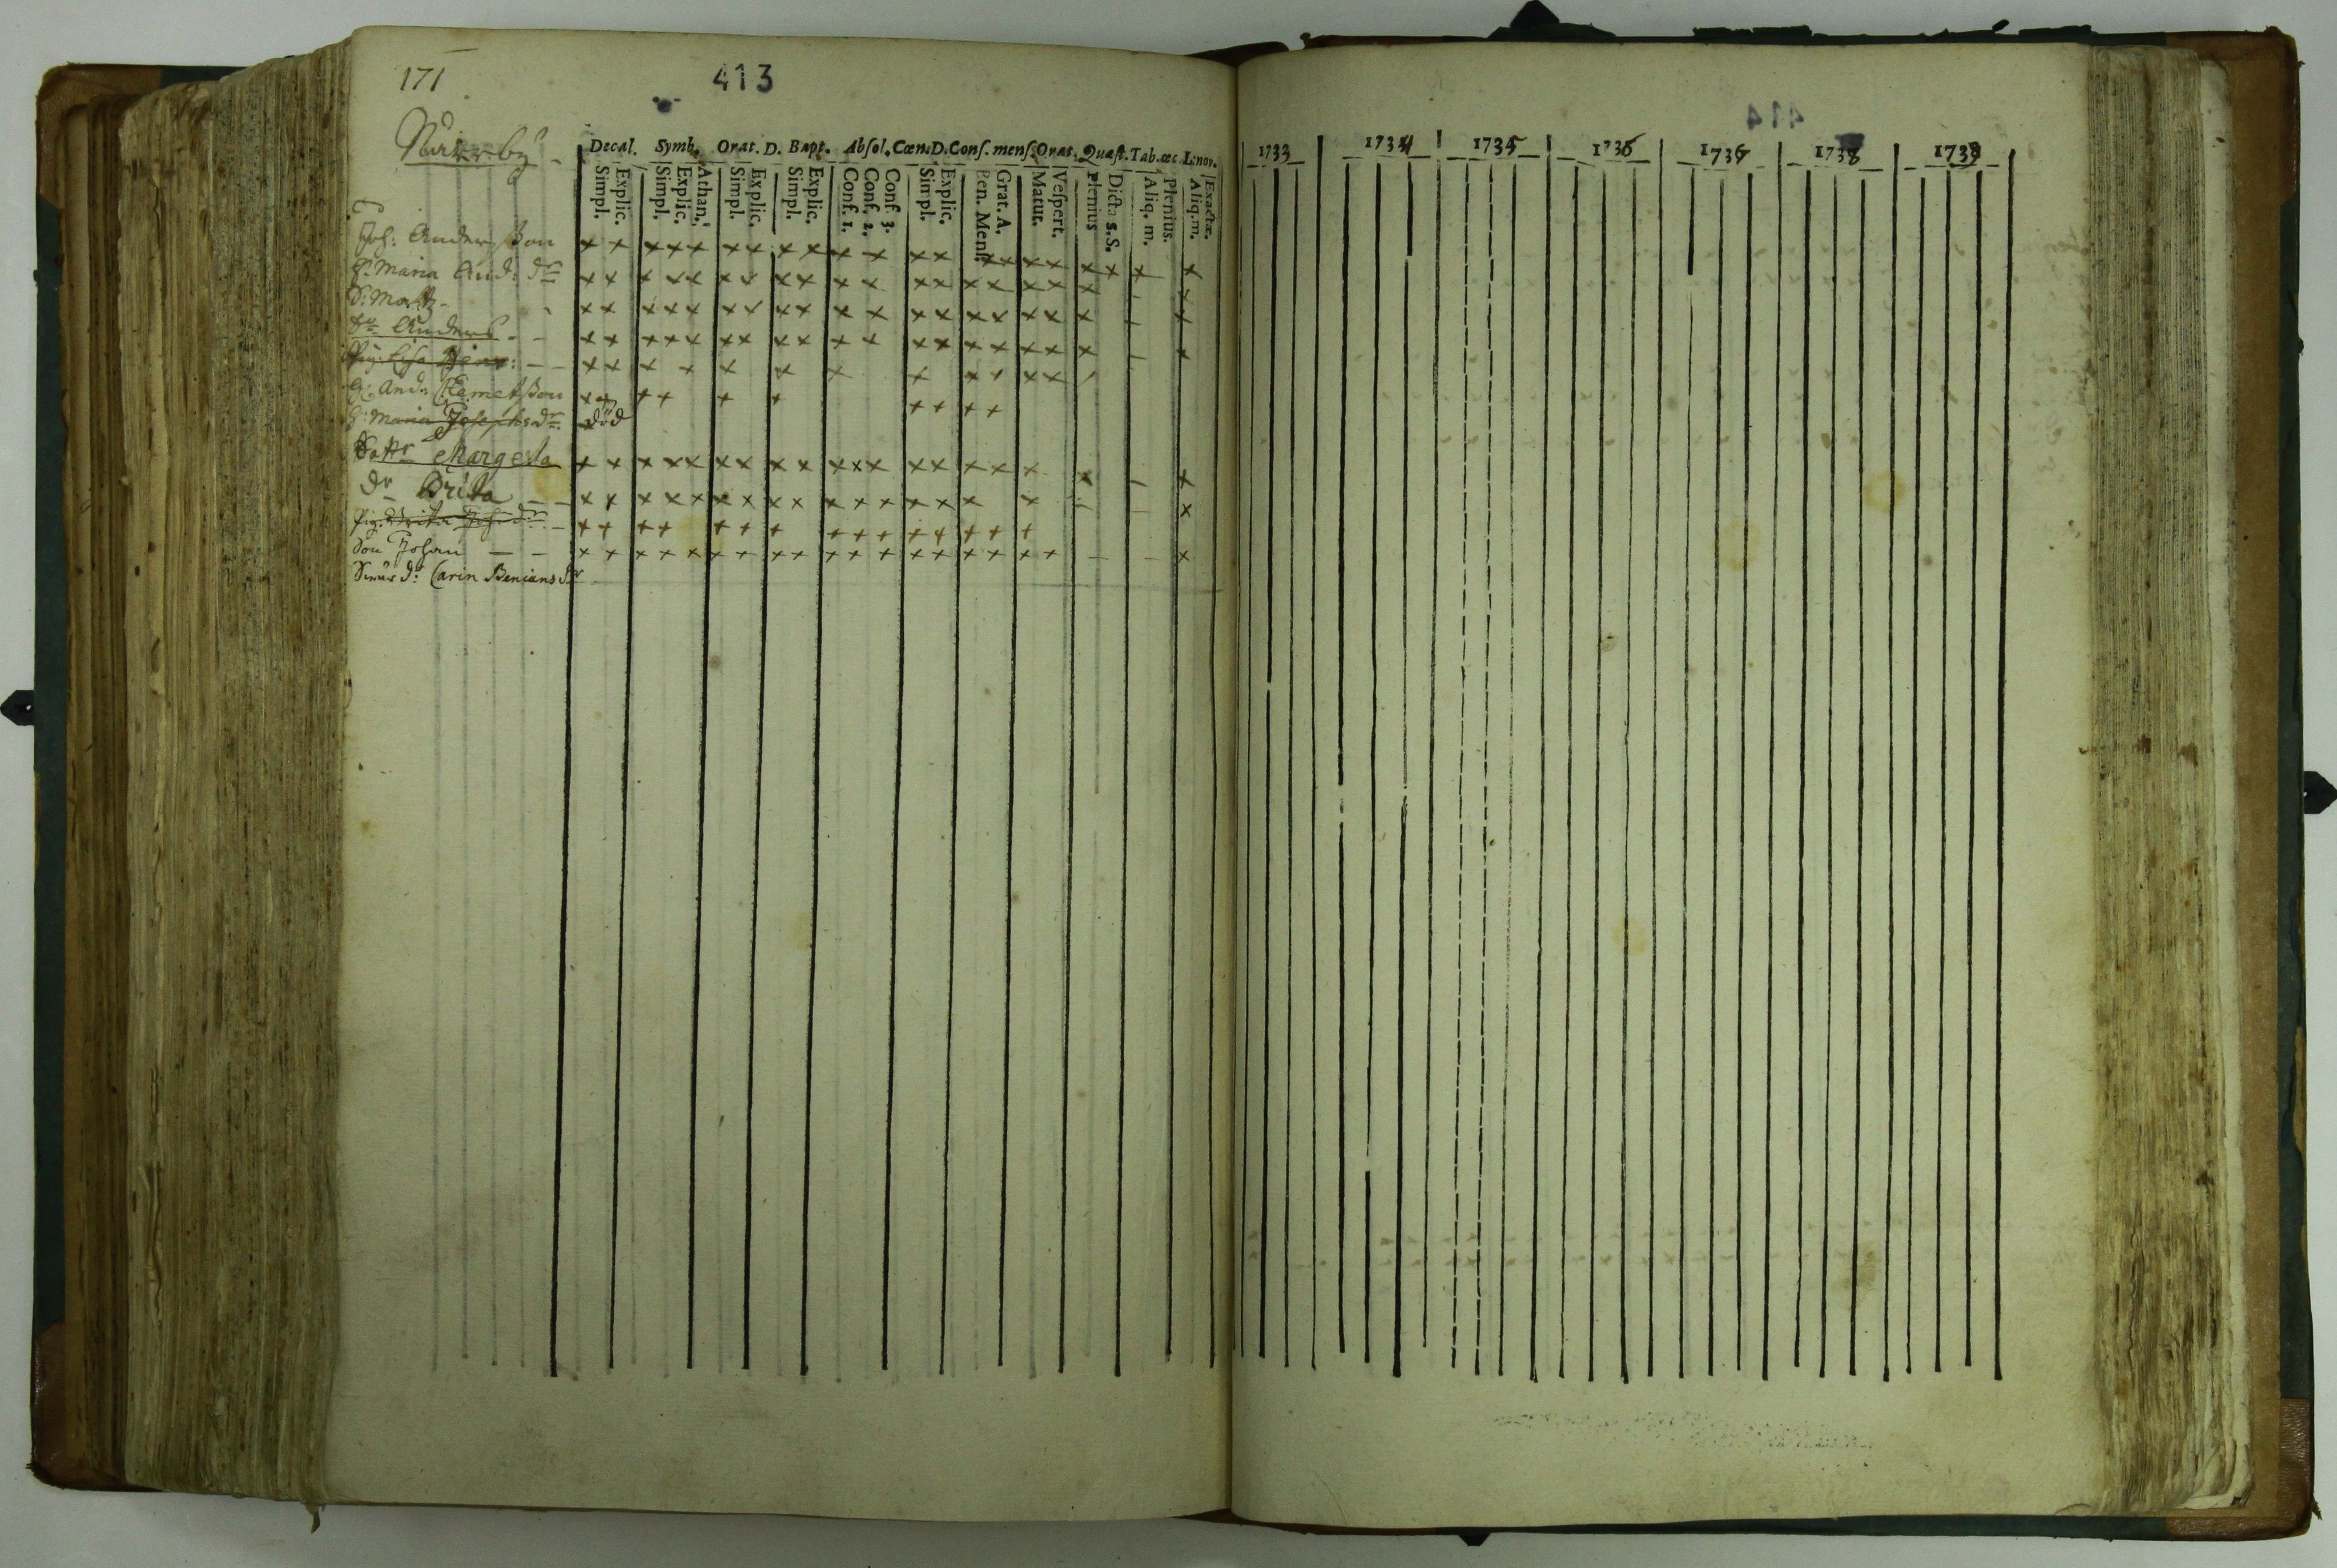 171
413
Decal. Symb. Orat. D. Bapt. Absol. Cœn. D. Conf. mens. Orat. Quæst. Tab. œc L. nov.
Simpl. Explic. Simpl. Explic. Athan. Simpl. Explic. Simpl. Explic. Conf. 1. Conf. 2. Conf. 3. Simpl. Explic. Ben. Mens. Grat. A. Matut. Vespert. Plenius Dicta s. S. Aliq. m. Plenius. Aliq. m. Exactæ.
Joh: Andersson
H: Maria And: dr
S: Matts
Sn Anders
Pig: Lisa
And: Clemetsson
H: Maria Josephsdr död
Dottr Margeta
Dr Brita
Pig: Brita Joh: dr
Son Johan
Carin Beniamsdr
1733 1734 1735 1736 1738 1739
414